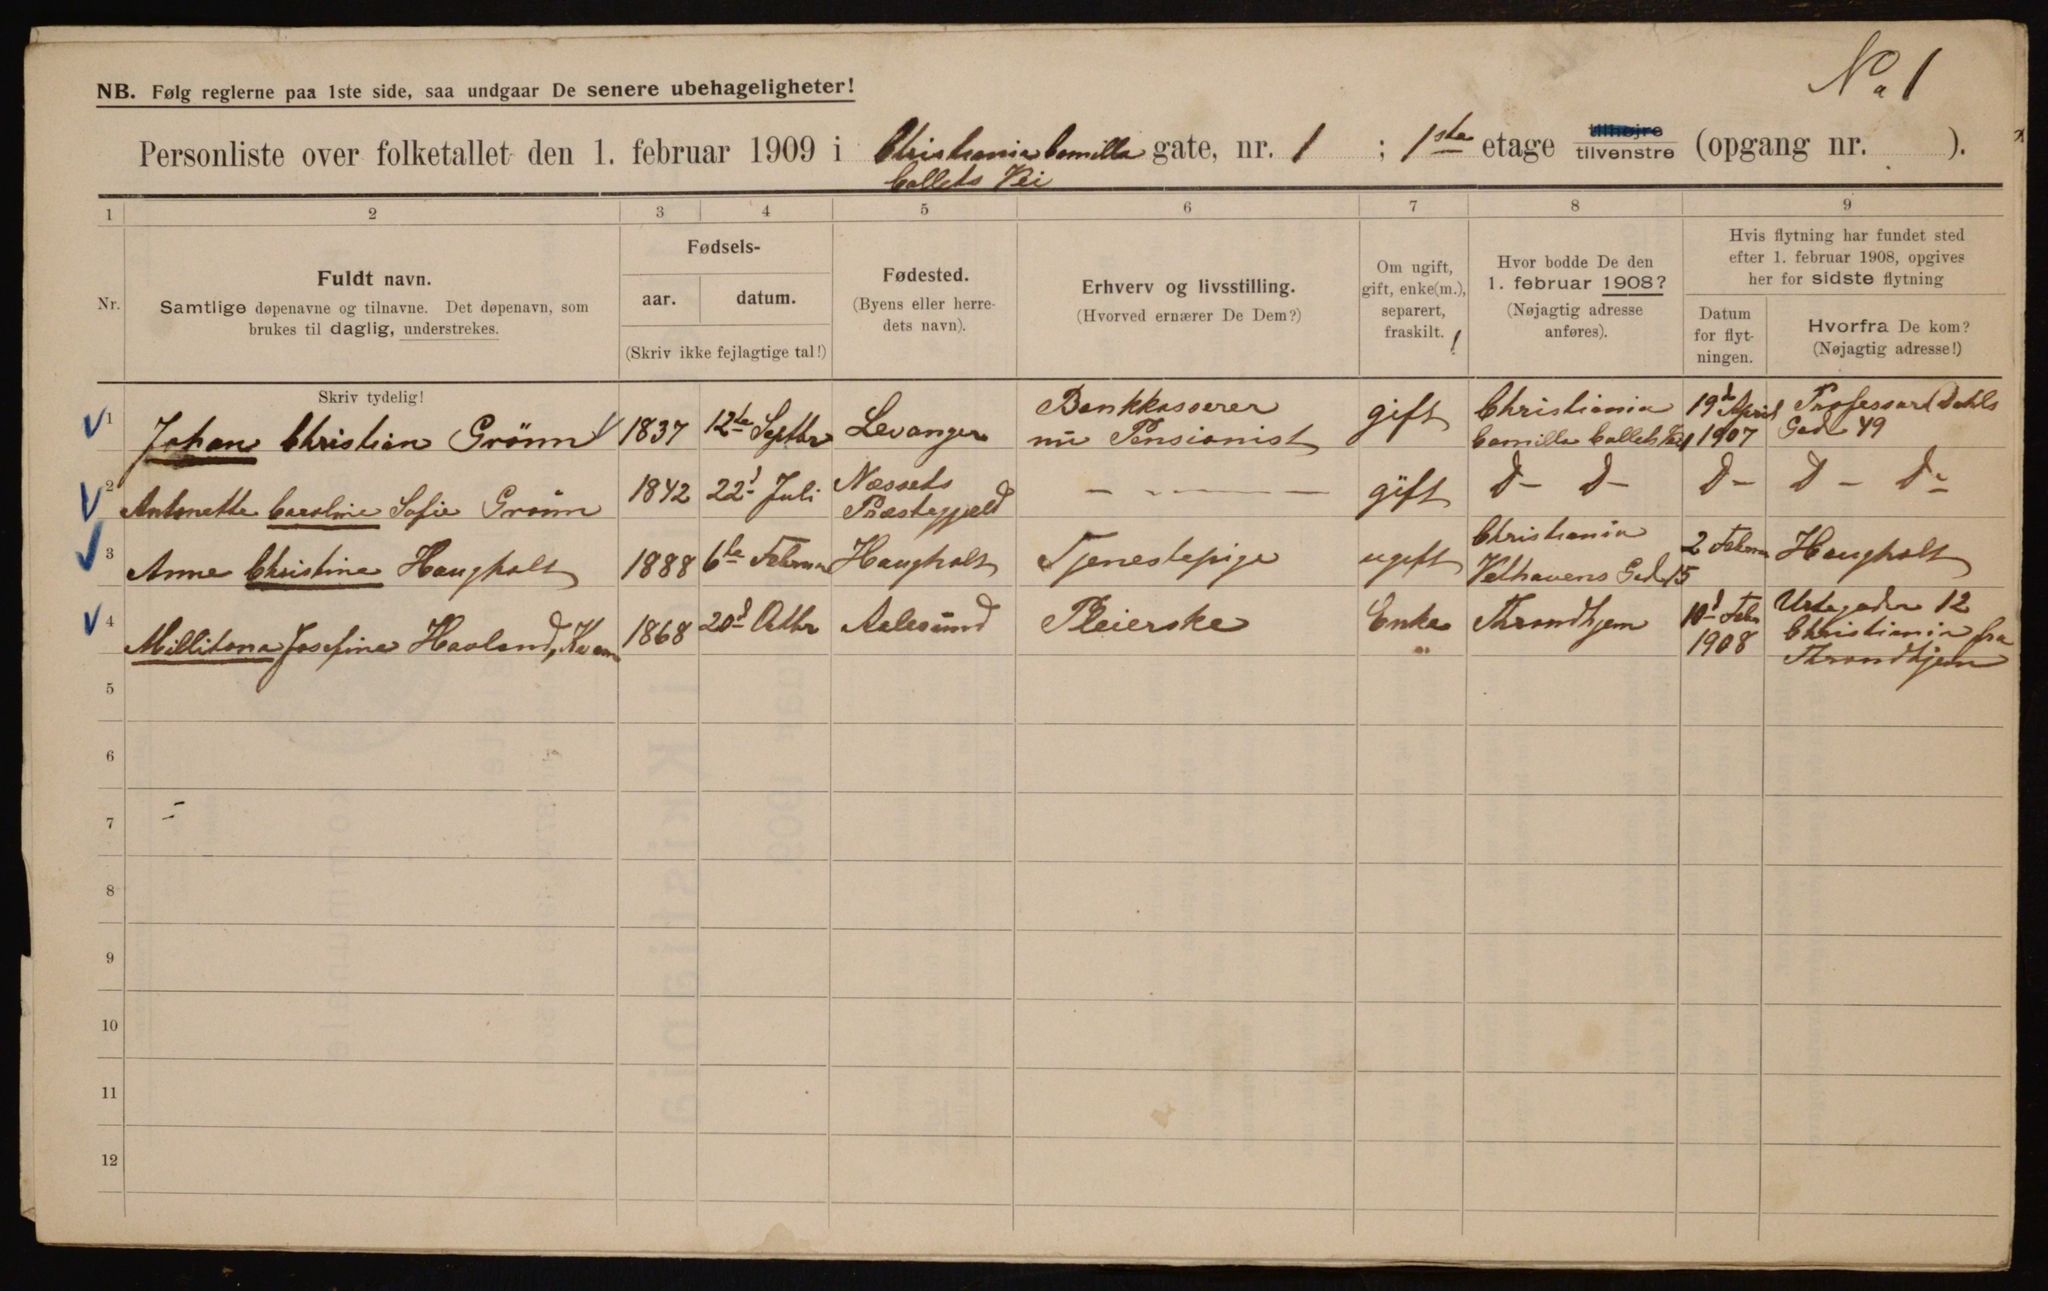 No 1
NB. Følg reglerne paa 1ste side, saa undgaar De senere ubehageligheter!
Personliste over folketallet den 1. februar 1909 i Christiania Camilla gate, nr. 1 ; 1ste etage tilhøjre tilvenstre (opgang nr. ).
Collets Vei
1 2 3 4 5 6 7 8 9
Nr.
Fuldt navn.
Samtlige døpenavne og tilnavne. Det døpenavn, som
brukes til daglig, understrekes.
Fødsels-
aar. datum.
(Skriv ikke fejlagtige tal!)
Fødested.
(Byens eller herre-
dets navn).
Erhverv og livsstilling.
(Hvorved ernærer De Dem?)
Om ugift,
gift, enke(m.),
separert,
fraskilt.
Hvor bodde De den
1. februar 1908?
(Nøjagtig adresse
anføres).
Hvis flytning har fundet sted
efter 1. februar 1908, opgives
her for sidste flytning
Datum
for flyt-
ningen.
Hvorfra De kom?
(Nøjagtig adresse!)
Skriv tydelig!
1 Johan Christian Grönn 1837 12te Septbr Levanger Bankkasserer nu Pensionist gift Christiania Camilla Collets Vei 1 19d April 1907 Professor Dahls Gade 49
2 Antonette Caroline Sofie Grönn 1842 22d Juli Næssets Præstegjæld - - - gift D- D- D- D- D-
3 Anne Christine Haugholt 1888 6te Februar Haugholt Tjenestepige ugift Christiania Velhavens Gade 15 2 Februar Haugholt
4 Millitona Josefine Havland, Kvam 1868 20d Octbr Aalesund Pleierske Enke Throndhjem 10d Febr 1908 Urtegaden 12 Christiania fra Throndhjem
5
6
7
8
9
10
11
12